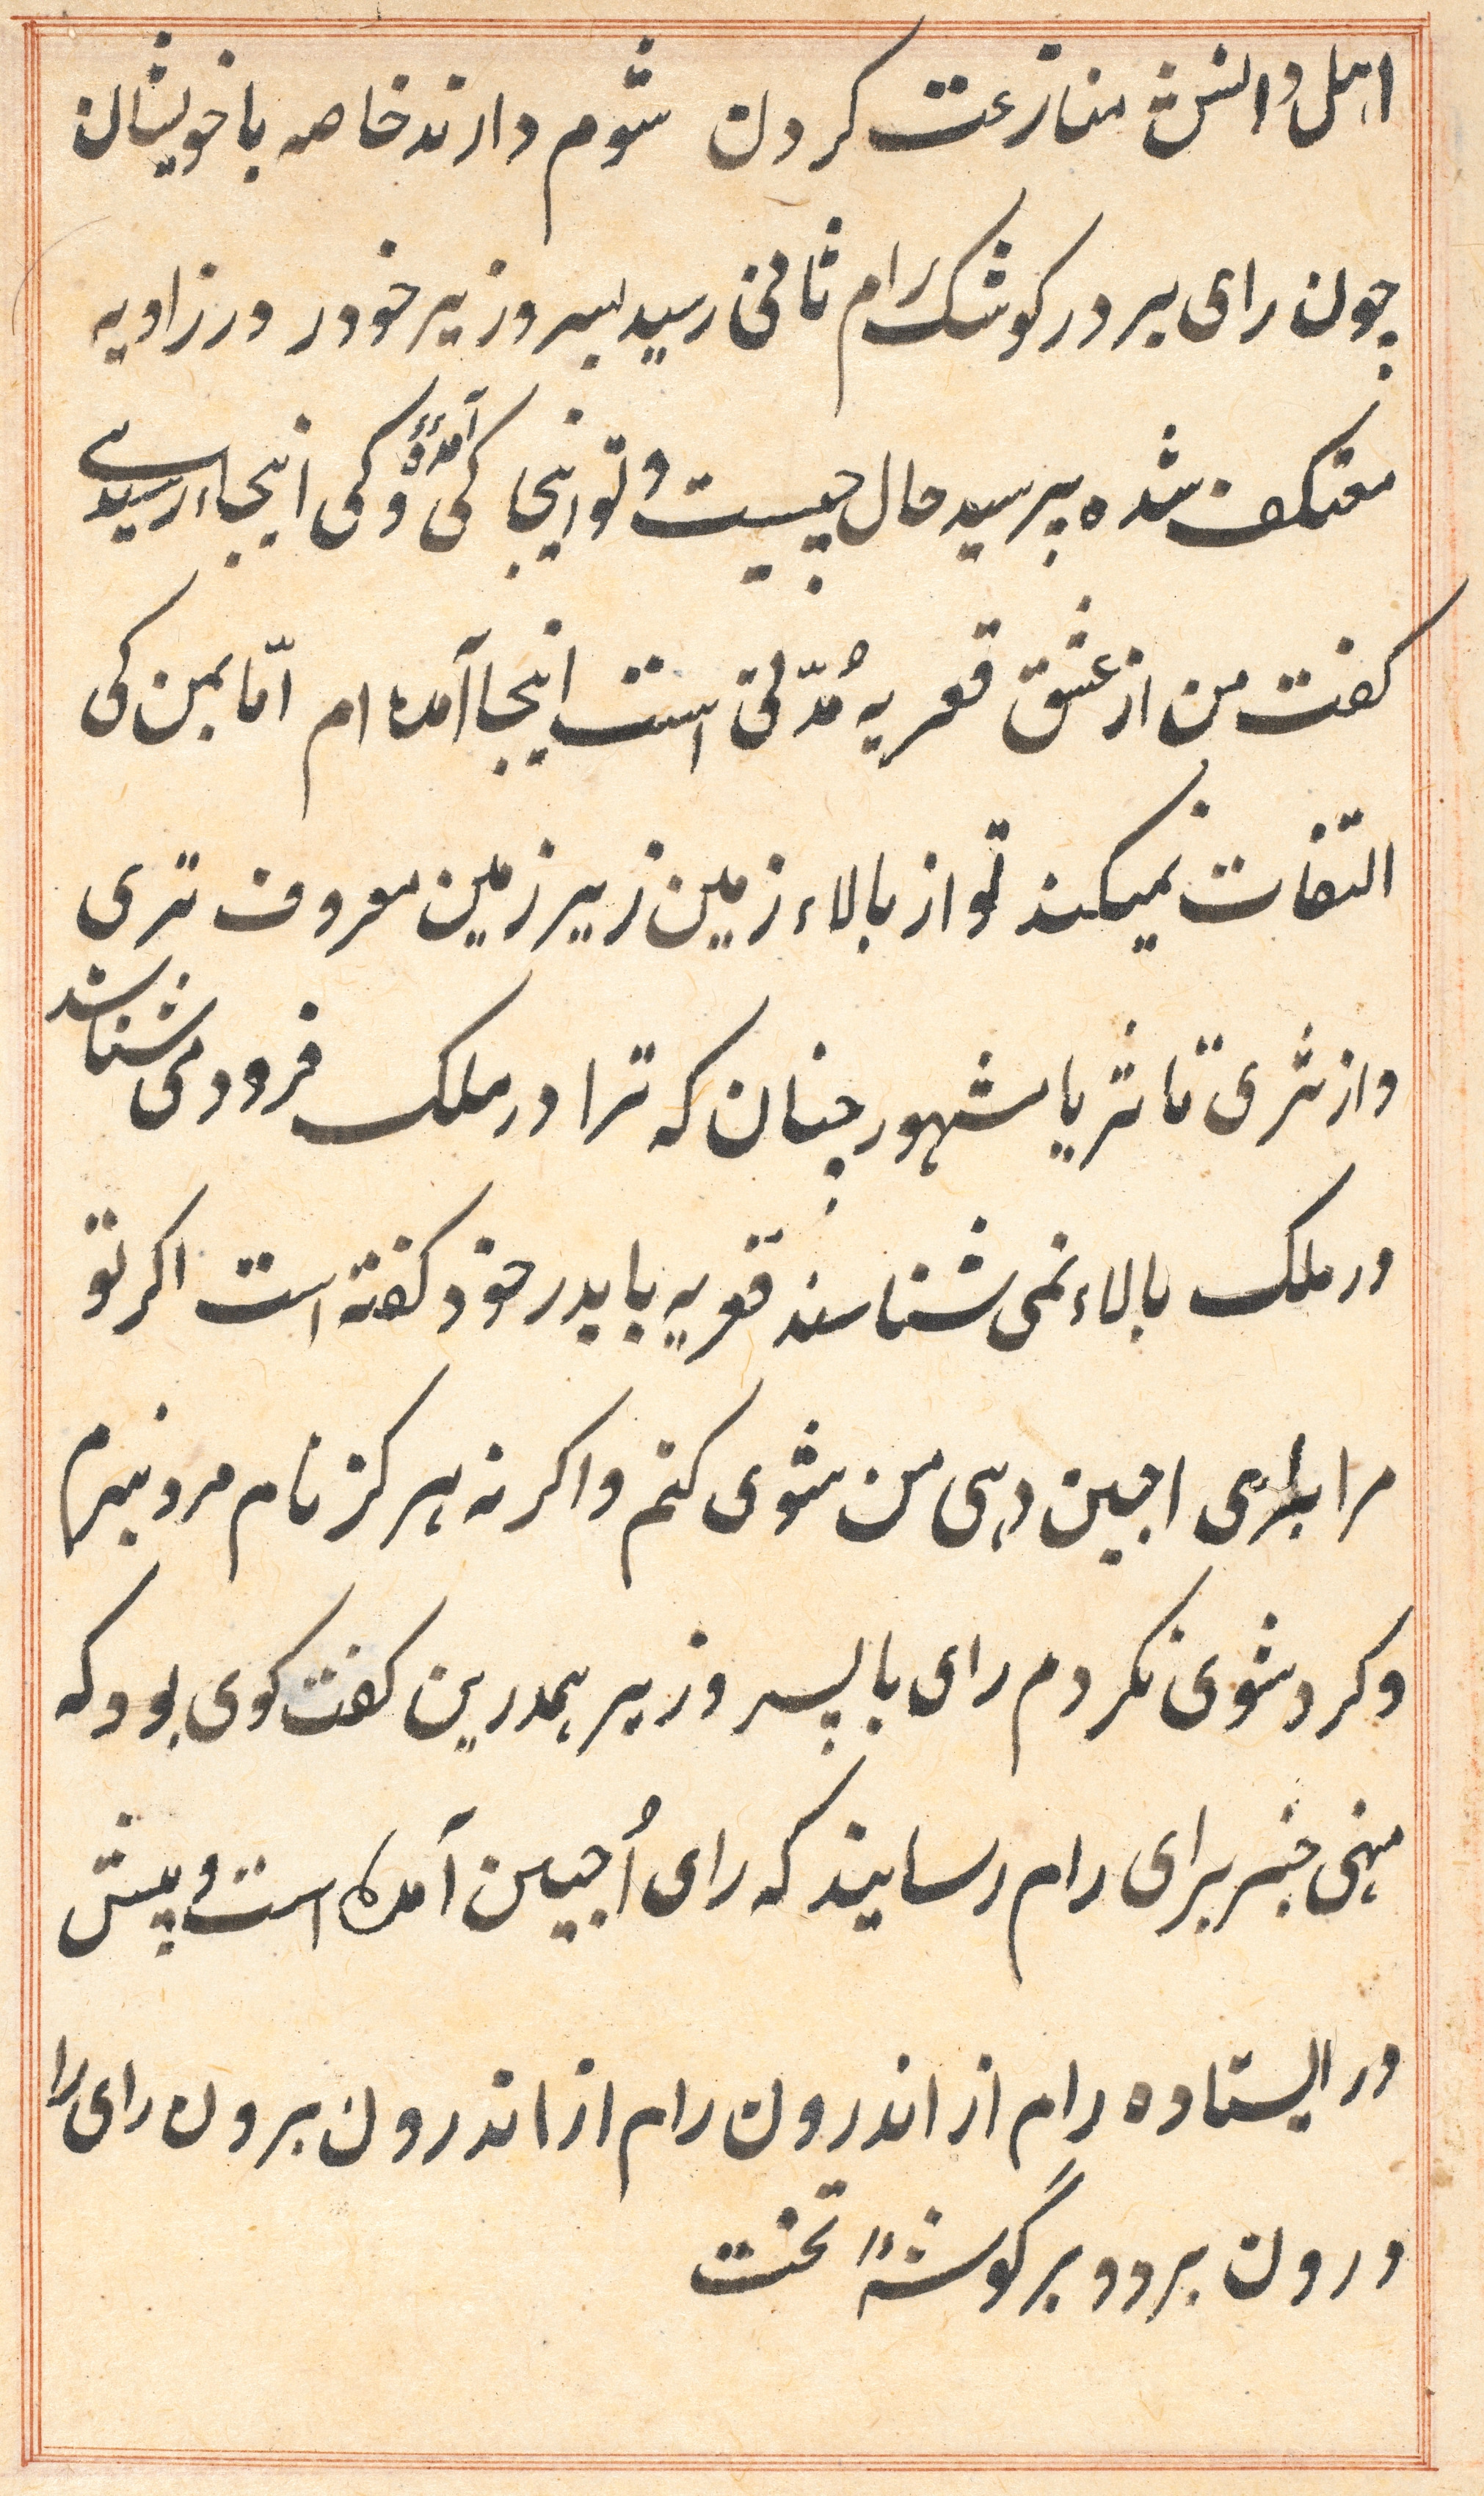 اهل دانش منازعت کردن شوم دارند خاصه با خویشان
چون رای بر در کوشک رام ثانی رسید پسر وزیر خود در زاویه
معتکف شده بپرسید حال چیست و تو اینجا کی آمدۀ و کی اینجا رسیدی
کفت من از عشق قعریه مُدّتی است اینجا آمده ام امّا بمن کی
التفات نمیکند تو از بالاء زمین زیر زمین معروف تری
و از ثری تا ثریا مشهور چنان که ترا در ملک فرود می شناسند
در ملک بالاء نمی شناسند قعریه با پدر خود کفته است اکر تو
مرا برای اجین دهی من شوی کنم و اکر نه هرکز نام مرد نبرم
و کرد شوی نکردم رای با پسر وزیر همدرین کفت کوی بود که
منهی خبر برای رام رسانید که رای اُجین آمده است و پیش
در ایستاده رام از اندرون رام از اندرون برون رای را
درون برد و بر گوشۀ تخت